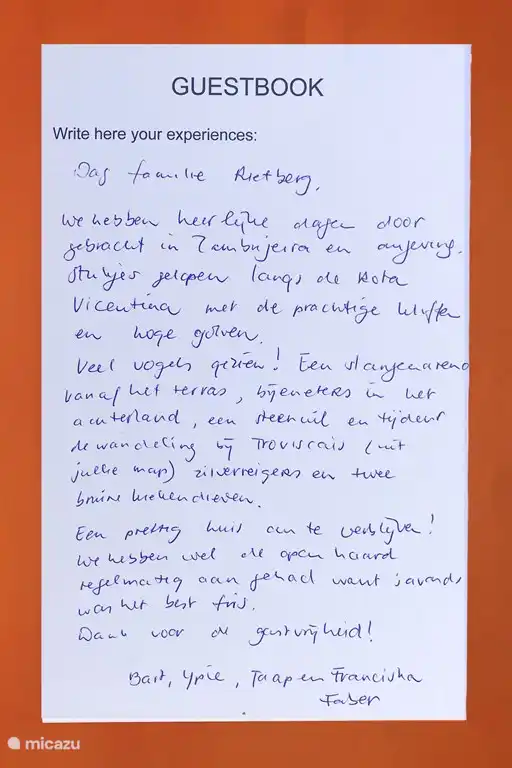 GUESTBOOK
Write here your experiences:
Dag familie Rietberg,
We hebben heerlijke dagen door
gebracht in Zambujeira en omgeving.
Stukjes gelopen langs de Rota
Vicentina met de prachtige kliffen
en hoge golven.
Veel vogels gezien! Een slangenarend
vanaf het terras, bijeneters in het
achterland, een steenuil en tijdens
de wandeling bij Troviscais (uit
jullie map) zilverreigers en twee
bruine kiekendieven.
Een prettig huis om te verblijven!
We hebben wel de open haard
regelmatig aan gehad want 's avonds
was het best fris.
Dank voor de gastvrijheid!
Bart, Ypie, Jaap en Franciska
Faber
micazu